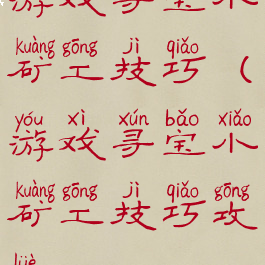 游戏寻宝小
kuàng gōng jì qiǎo
矿工技巧（
yóu xì xún bǎo xiǎo
游戏寻宝小
kuàng gōng jì qiǎo gōng
矿工技巧攻
lüè